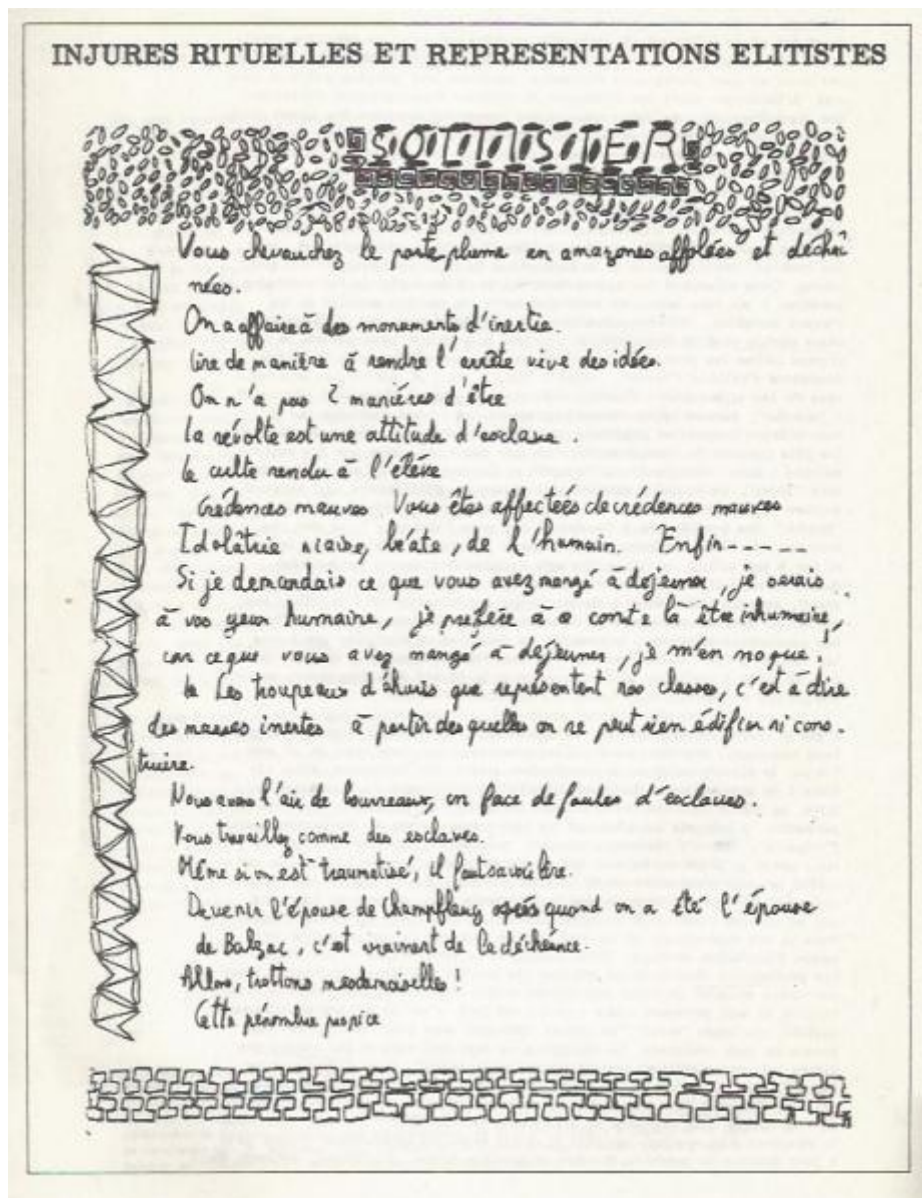 INJURES RITUELLES ET REPRESENTATIONS ELITISTES
SOTTISIER
Vous chevauchez le porte plume en amazones affolées et déchaî
nées.
On a affaire à des monuments d'inertie.
lire de manière à rendre l'arête vive des idées.
On n'a pas 2 manières d'être
la révolte est une attitude d'esclave.
le culte rendu à l'élève
Crédences mauves. Vous êtes affectées de crédences mauves
Idolâtrie niaise, béate, de l'humain. Enfin-----
Si je demandais ce que vous avez mangé à dejeuner, je serais
à vos yeux humaine, je préfère à ce conte là être inhumaine,
car ce que vous avez mangé à déjeuner, je m'en moque!
Les troupeaux d'ahuris que représentent nos classes, c'est à dire
des masses inertes à partir desquelles on ne peut rien édifier ni cons-
truire.
Nous avons l'air de bourreaux, en face de foules d'esclaves.
Vous travaillez comme des esclaves.
Même si on est traumatisé, il faut savoir lire.
Devenir l'épouse de Champfleury après quand on a été l'épouse
de Balzac, c'est vraiment de la déchéance.
Allons, trottons mesdemoiselles!
Cette pénombre propice